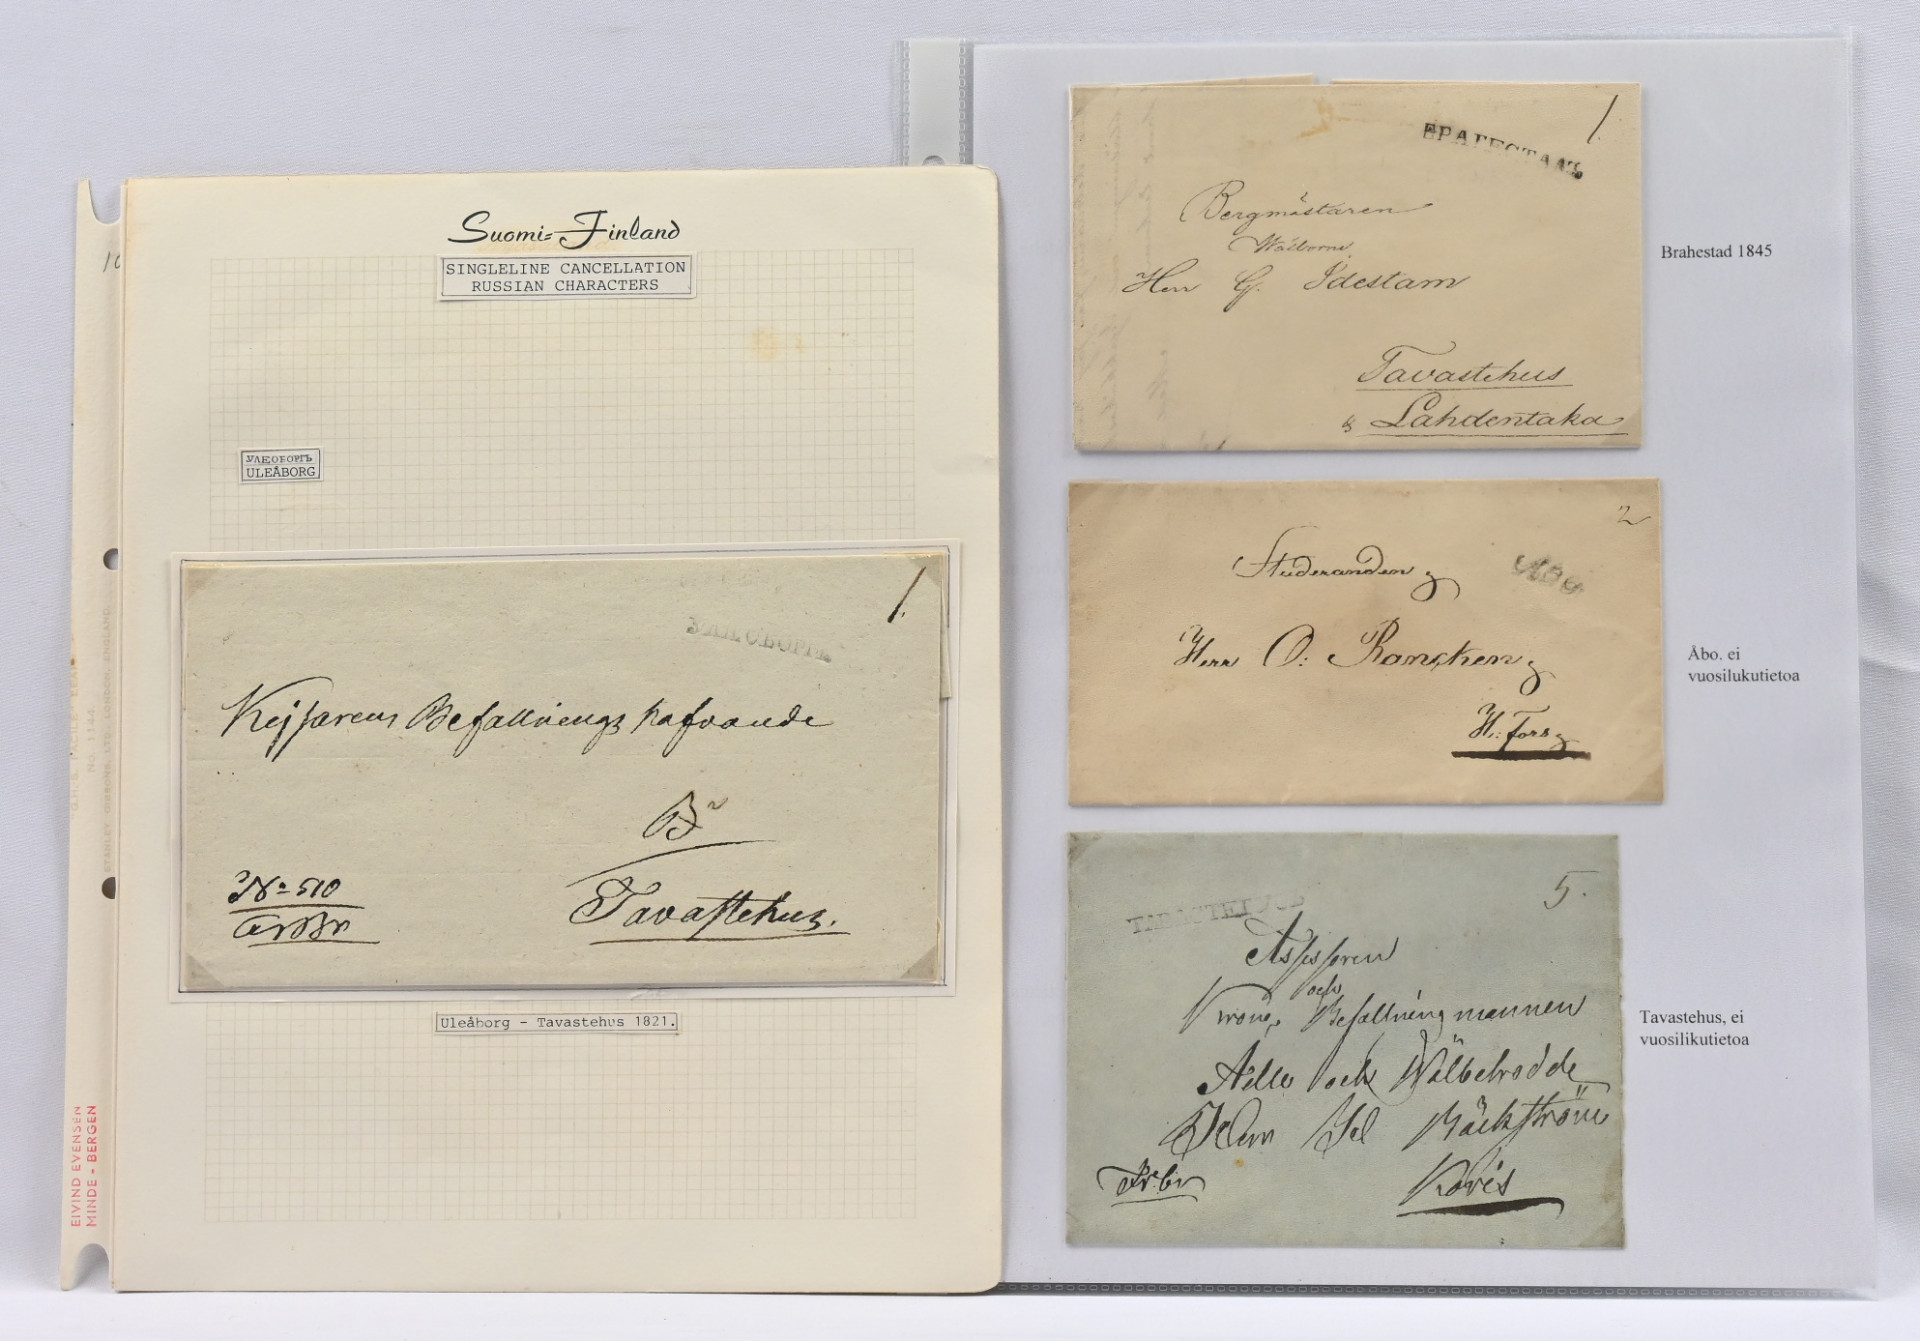 Suomi-Finland
SINGLELINE CANCELLATION
RUSSIAN CHARACTERS
УЛЕОБОРГЪ
ULEÅBORG
1.
УЛЕОБОРГЪ
Kejsarens Befallningshafvande
Tavastehus.
No 510
Uleåborg - Tavastehus 1821.
EIVIND EVENSEN
MINDE - BERGEN
No. 1144
STANLEY GIBBONS, LTD. LONDON, ENGLAND
1.
БРАГЕСТАДЪ
Bergmästaren
Wälborne
Herr G. Idestam
Tavastehus
& Lahdentaka
Brahestad 1845
2
АБО
Studeranden
Herr O: Rancken
H:fors
Åbo. ei
vuosilukutietoa
5.
ТАВАСТЕГУСЪ
Assessoren
och
Krono Befallningmannen
Ädle och Wälbetrodde
Herr Bäckström
Tavastehus, ei
vuosilikutietoa